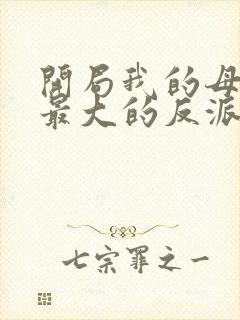 開局我的母
最大的反派
七宗罪之一